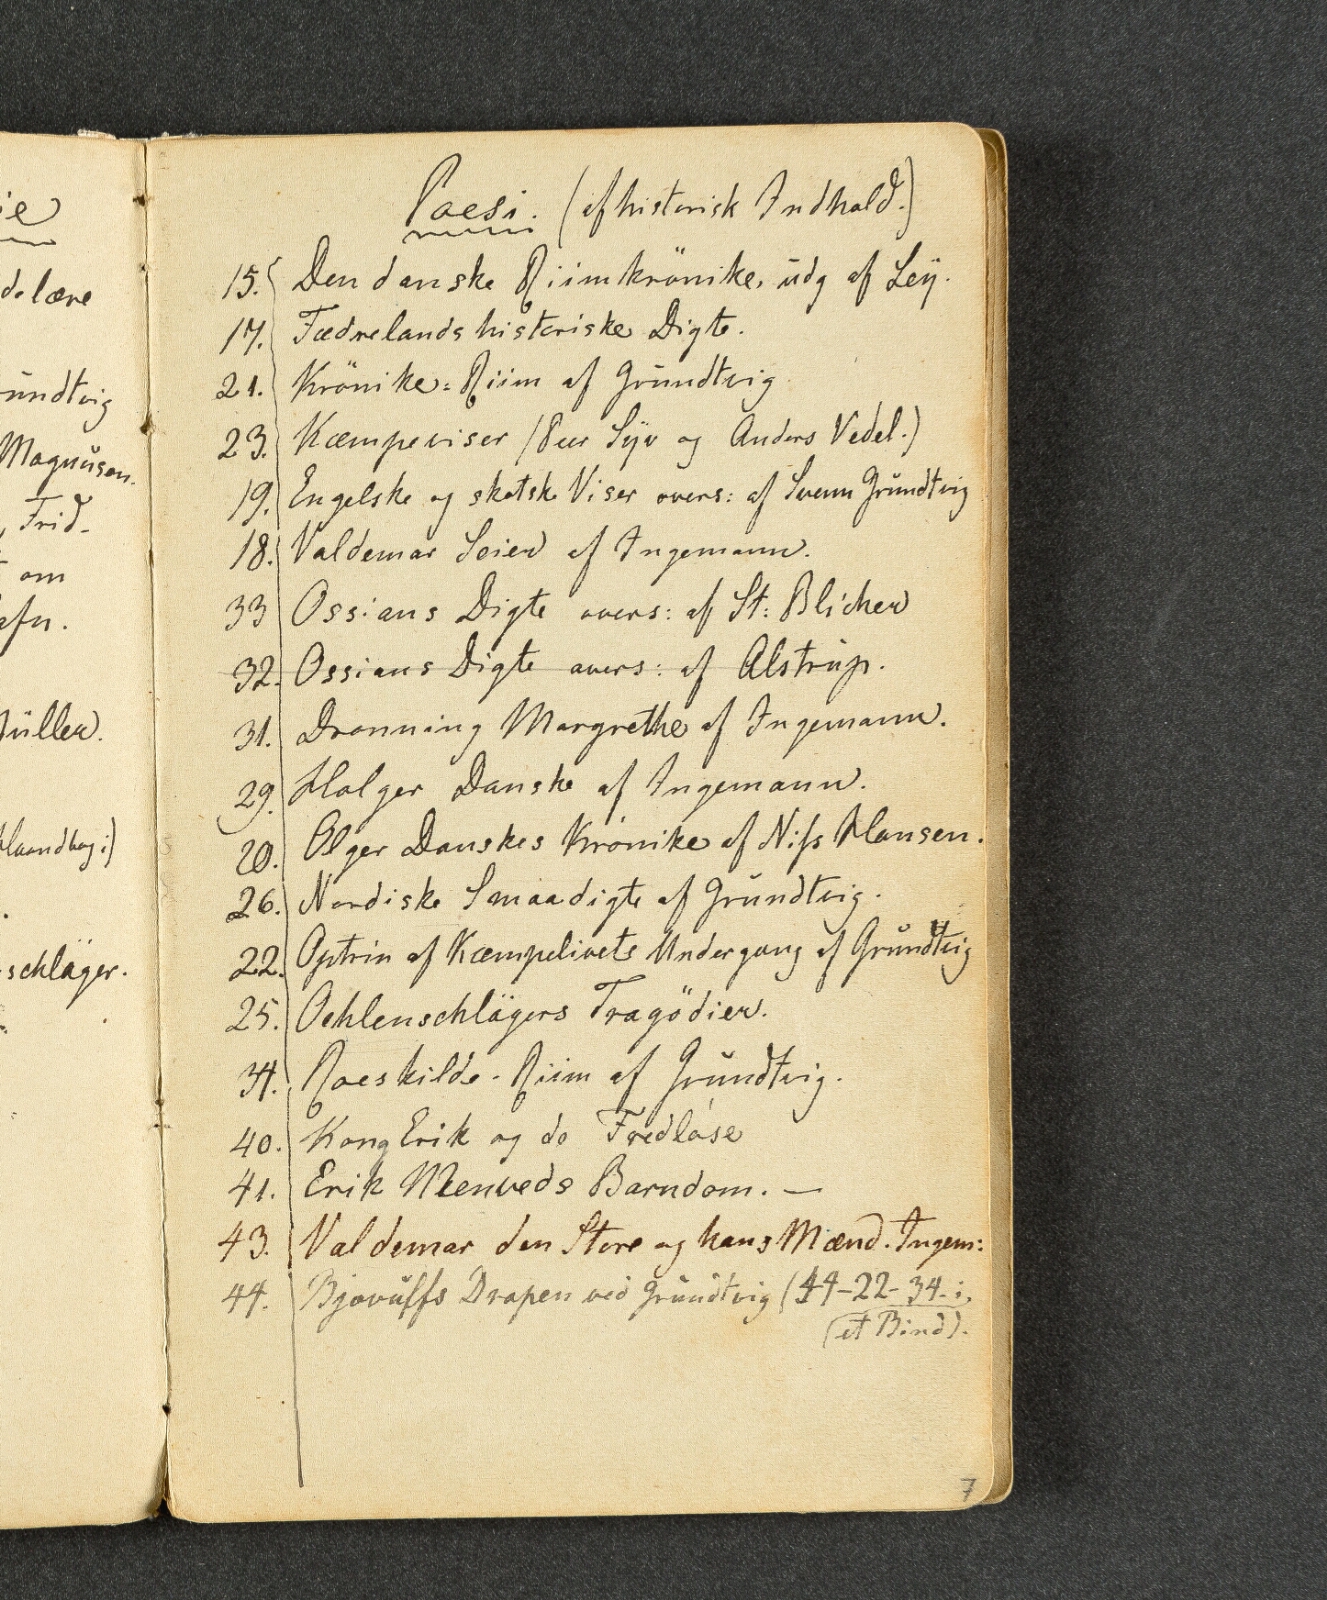 ie
delære
undtvig
Magnusen.
Frid.
om
afn.
üller.
Haandbog i)
schläger.
Poesi. (af historisk Indhold.)
15. Den danske Riimkrönike, udg af Ley.
17. Fædrelandshistoriske Digte.
21. Krönike=Riim af Grundtvig
23. Kæmpeviser (Peer Syv og Anders Vedel.)
19. Engelske og skotske Viser overs: af Svenn Grundtvig
18. Valdemar Seier af Ingemann.
33 Ossians Digte overs: af St: Blicher
32. Ossians Digte overs: af Alstrup.
31. Dronning Margrethe af Ingemann.
29. Holger Danske af Ingemann.
20. Olger Danskes Krönike af Niss Hansen.
26. Nordiske Smaadigte af Grundtvig.
22. Optrin af Kæmpelivets Undergang af Grundtvig
25. Oehlenschlägers Tragödier.
34. Roeskilde-Riim af Grundtvig.
40. Kong Erik og de Fredløse
41. Erik Menveds Barndom. —
43. Valdemar den Store og hans Mænd. Ingem:
44. Bjovulfs Drapen ved Grundtvig (44-22-34. i.
(et Bind).
7